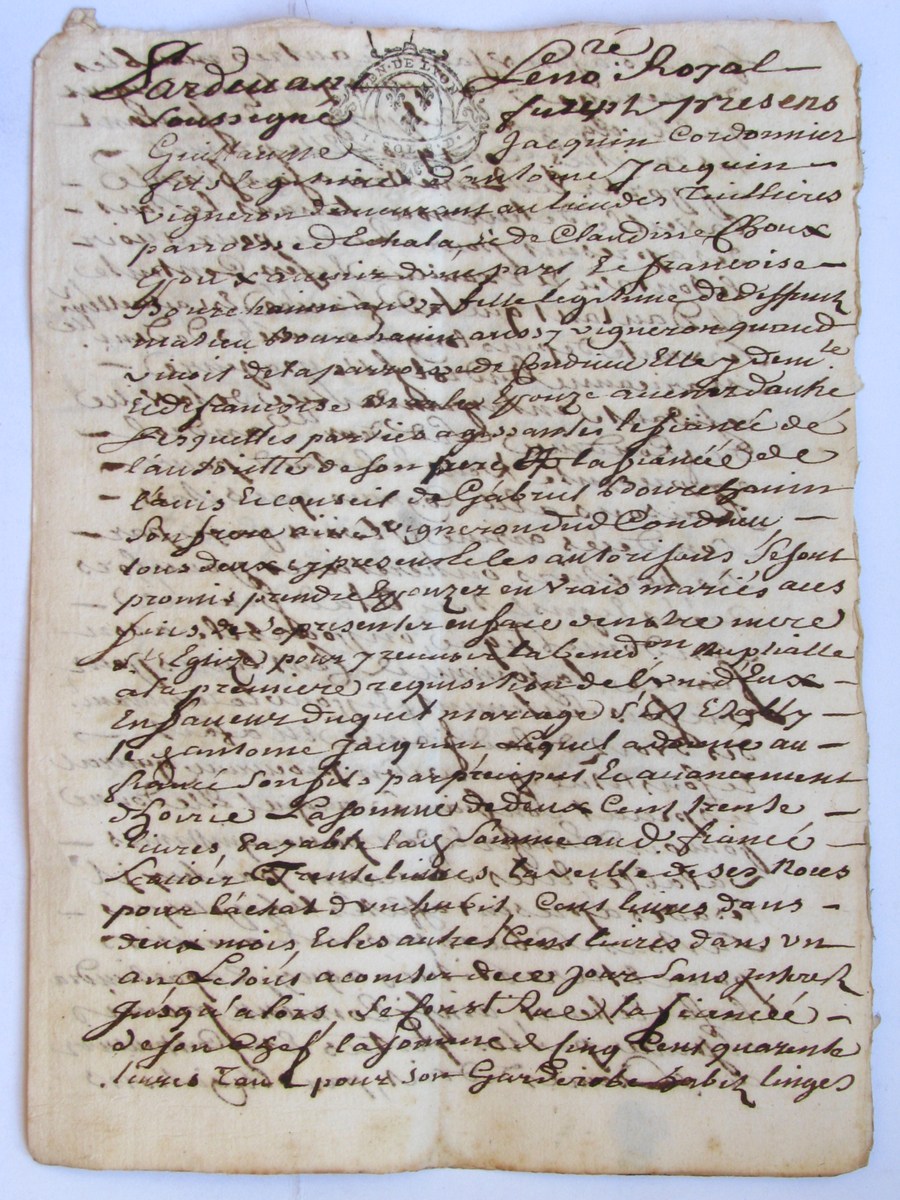 Pardevant Le no.re Royal
GEN. DE LYON
Soussigné furent presens
Guillaume Jacquin Cordonnier
fils legitime d'antoine Jacquin
vigneron demeurant au lieu des Tuillieres
parroisse d'Echala, & de Claudine Choux
Epoux a venir d'une part Et francoise
fille légitime de deffunt
vigneron quand
vivoit de la parroisse de Condrieu Elle y dem.te
Et de francoise Epouze a venir d'autre
Lesquelles parties agissantes le fiancé de
l'autorité de son pere, Et la fiancée de
l'avis Et conseil de Gabriel
Son frere ainé vigneron dud Condrieu
tous deux cy presents les autorisans Se sont
promis prendre Epouzer en vrais mariés aces
fins de se presenter en face de notre mere
S.te Eglise pour y recevoir la bened.on Nuptialle
a la premiere requisition de l'un d'Eux
En faveur duquel mariage S'est Etably
led antoine Jacquin Lequel a donné au
fiancé Son fils par préciput Et avancement
d'hoirie La somme de deux Cent trente
livres Payable lad Somme aud fiancé
Scavoir Trente livres la veille de ses Noces
pour l'achat d'un habit, Cent livres dans
deux mois, Et les autres Cent livres dans un
an Le tous a compter de ce Jour Sans interest
Jusqu'alors Se Constitue la fiancée
de son chef la somme de Cinq Cent quarente
livres Tant pour son Garderobe habit linges